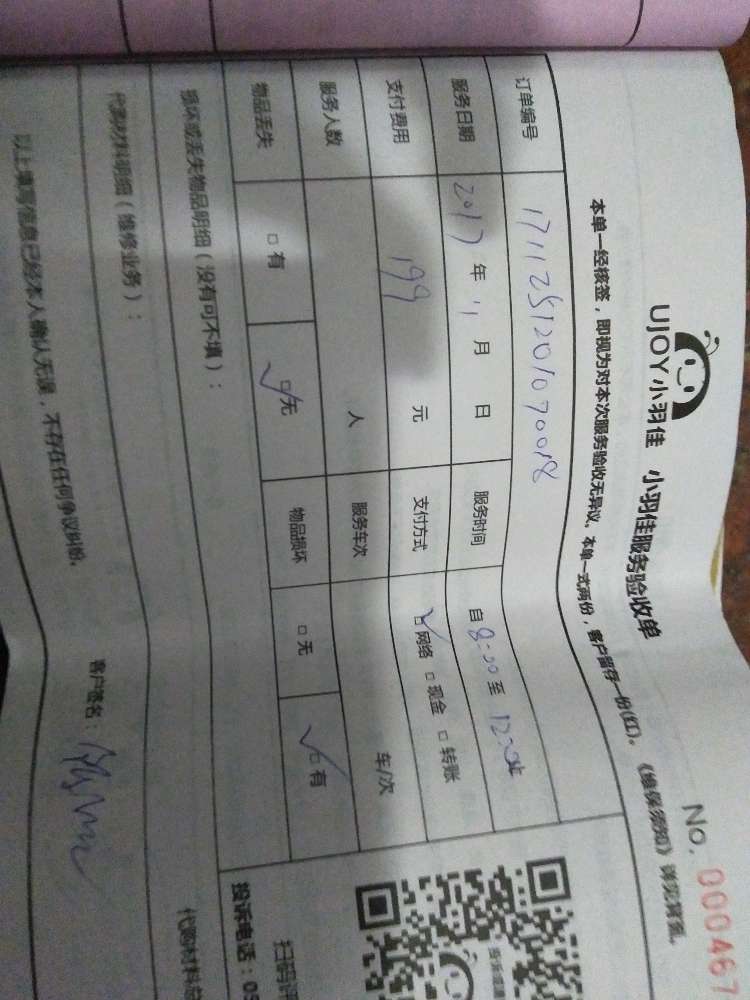 UJOY小羽佳 小羽佳服务验收单
No. 000467
本单一经核签，即视为对本次服务验收无异议。本单一式两份，客户留存一份(红)。《维保须知》详见背面。
订单编号 1711251201070018
服务日期 2017 年 11 月 日 服务时间 自 8:00 至
支付费用 199 元 支付方式 ☑网络 □现金 □转账
服务人数 人 服务车次 车/次
物品丢失 □有 ☑无 物品损坏 □无 ☑有
损坏或丢失物品明细（没有可不填）：
代购材料明细（维修业务）：
代购材料总
以上填写信息已经本人确认无误，不存在任何争议纠纷。
客户签名：
投诉或建
扫码评
投诉电话：05